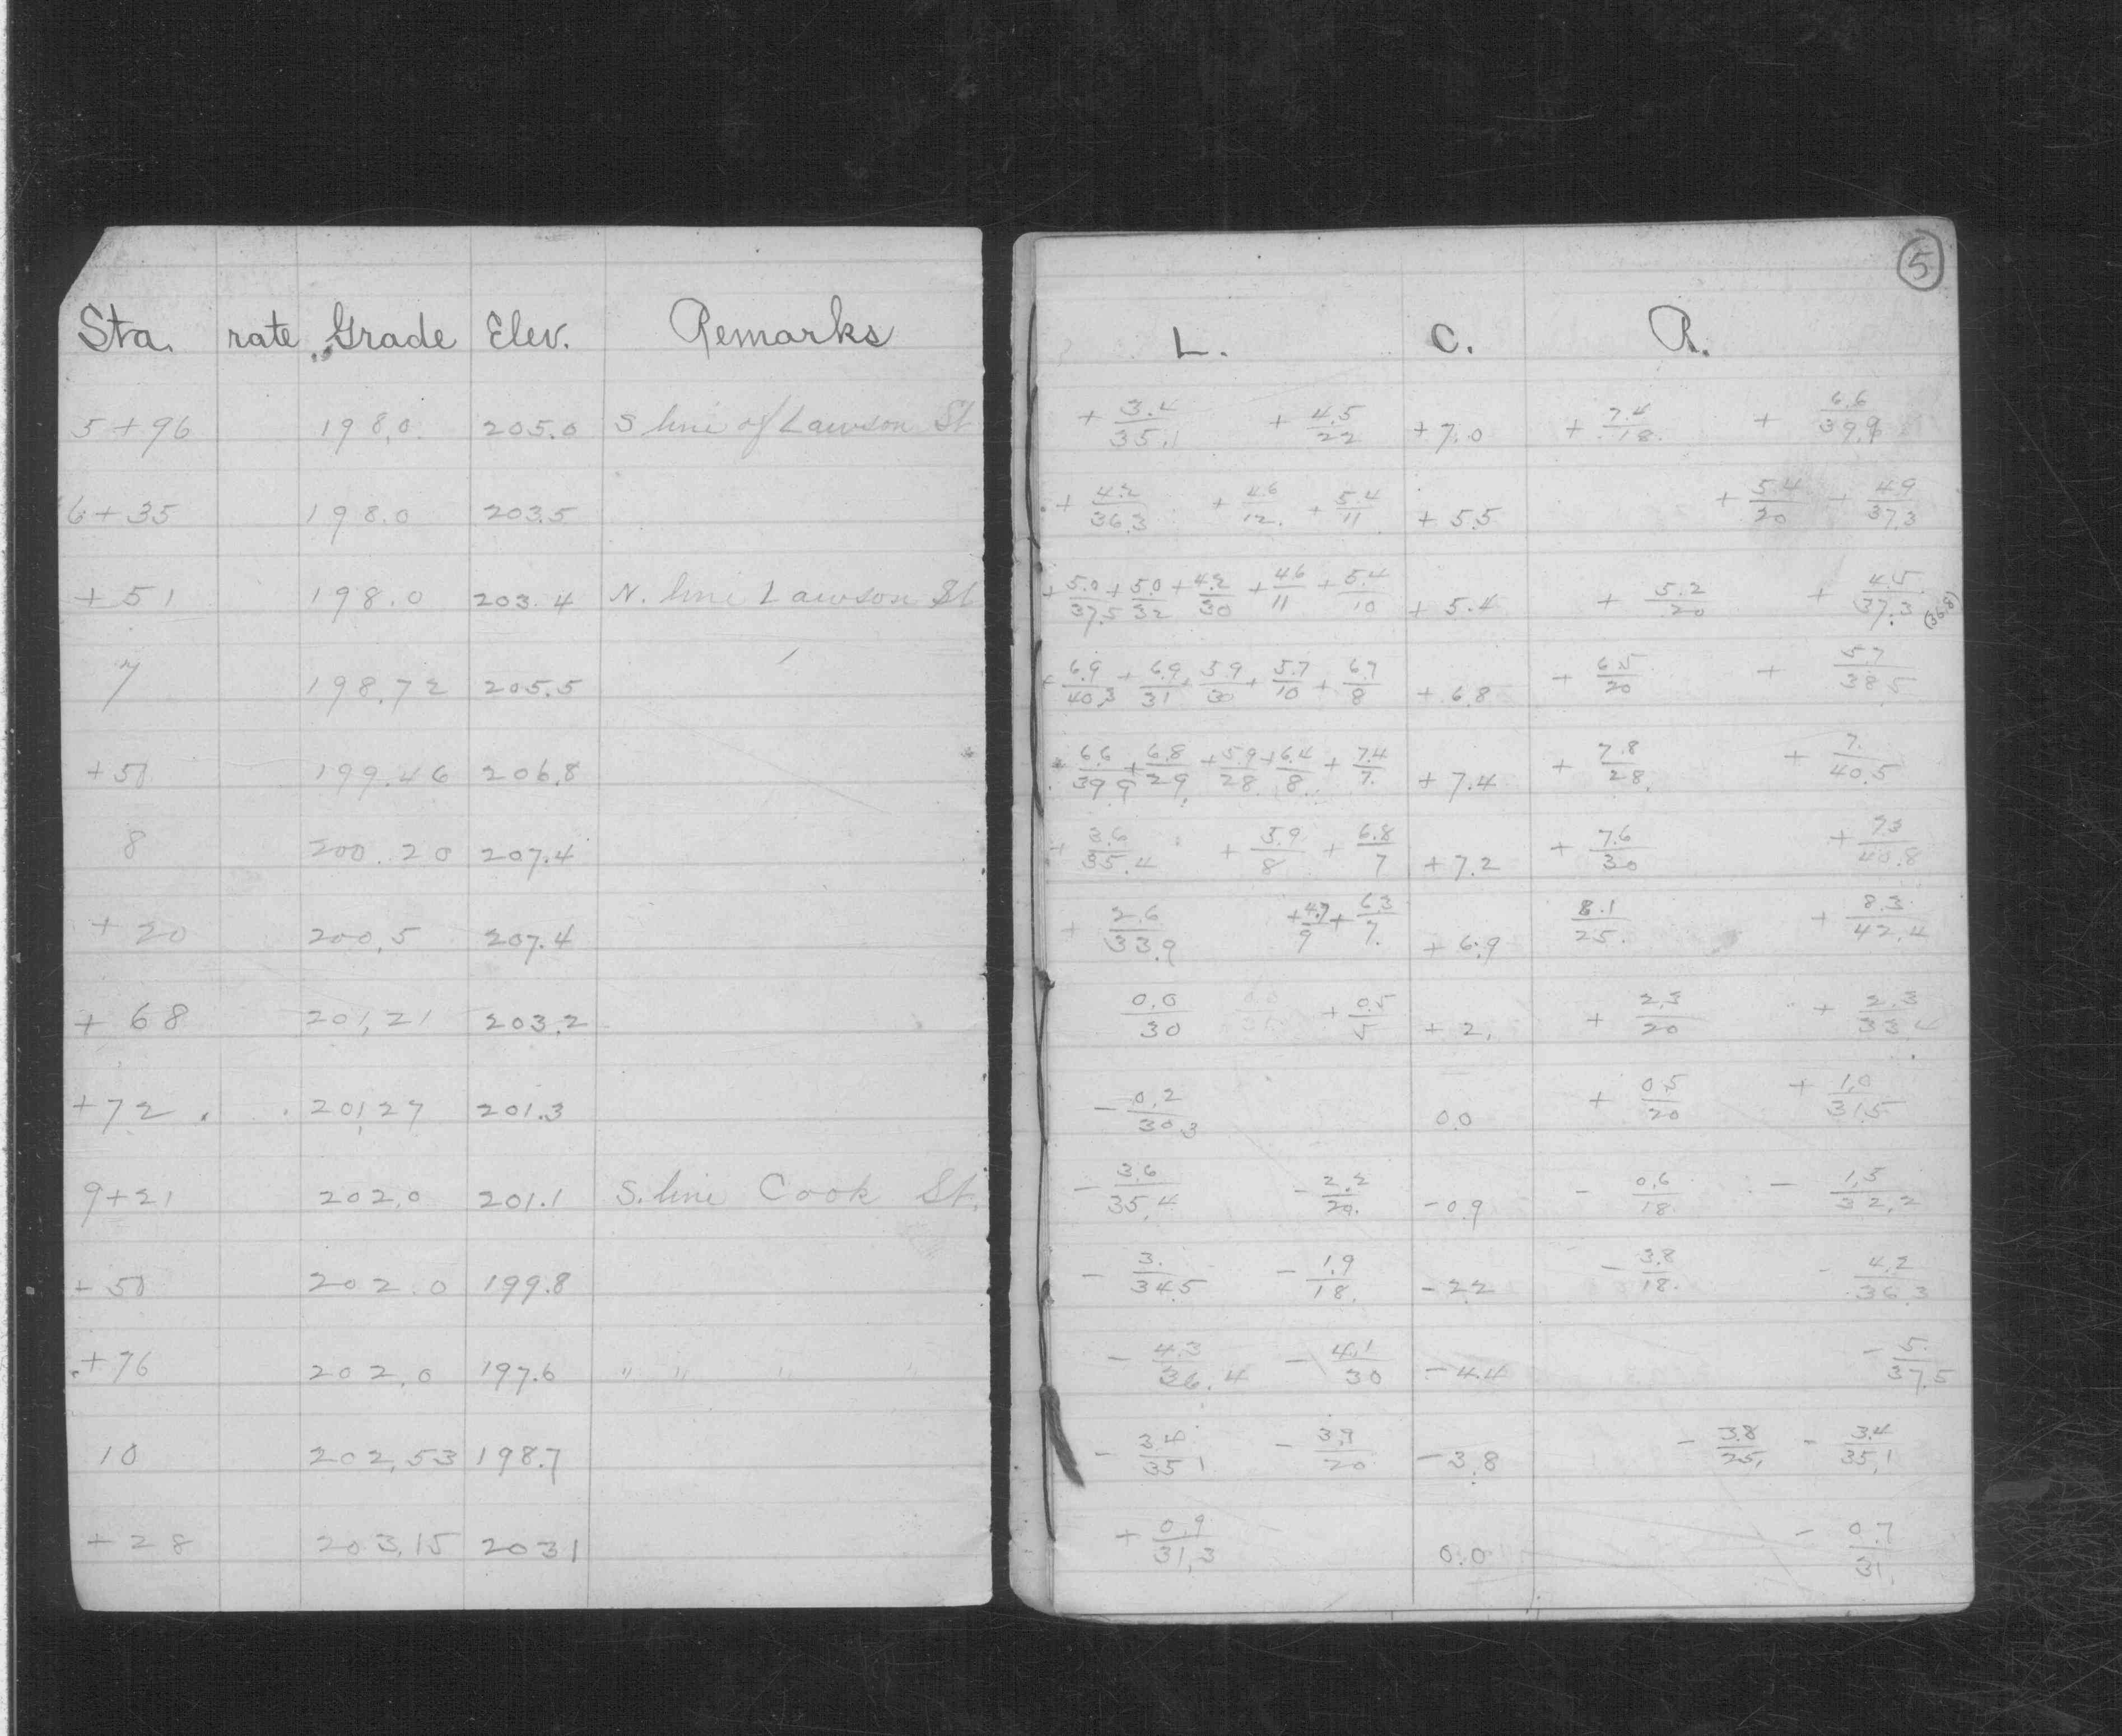 5
Sta. rate Grade Elev. Remarks L. C. R.
5+96 198.0. 205.0 S line of Lawson St +3.4/35.1 +4.5/22 +7.0 +7.4/18. +6.6/39.9
6+35 198.0 203.5 +4.2/36.3 +4.6/12. +5.4/11 +5.5 +5.4/20 +4.9/37.3
+51 198.0 203.4 N. line Lawson St +5.0/37.5 +5.0/32 +4.2/30 +4.6/11 +5.4/10 +5.4 +5.2/20 +4.5/37.3 (36.8)
7 198.72 205.5 +6.9/40.3 +6.9/31 +5.9/30 +5.7/10 +6.7/8 +6.8 +6.5/20 +5.7/38.5
+50 199.46 206.8 +6.6/39.9 +6.8/29. +5.9/28 +6.4/8. +7.4/7. +7.4 +7.8/28. +7./40.5
8 200.20 207.4 +3.6/35.4 +5.9/8 +6.8/7 +7.2 +7.6/30 +7.3/40.8
+20 200.5 207.4 +2.6/33.9 +4.7/9 +6.3/7. +6.9 8.1/25. +8.3/42.4
+68 201.21 203.2 0.0/30 +0.5/5 +2. +2.3/20 +2.3/33.4
+72. 201.27 201.3 -0.2/30.3 0.0 +0.5/20 +1.0/31.5
9+21 202.0 201.1 S. line Cook St. -3.6/35.4 -2.2/20. -0.9 -0.6/18 -1.5/32.2
+50 202.0 199.8 -3./34.5 -1.9/18. -2.2 -3.8/18. -4.2/36.3
+76 202.0 197.6 " " " " -4.3/36.4 -4.1/30 -4.4 -5./37.5
10 202.53 198.7 -3.4/35.1 -3.9/20 -3.8 -3.8/25. -3.4/35.1
+28 203.15 203.1 +0.9/31.3 0.0 -0.7/31.